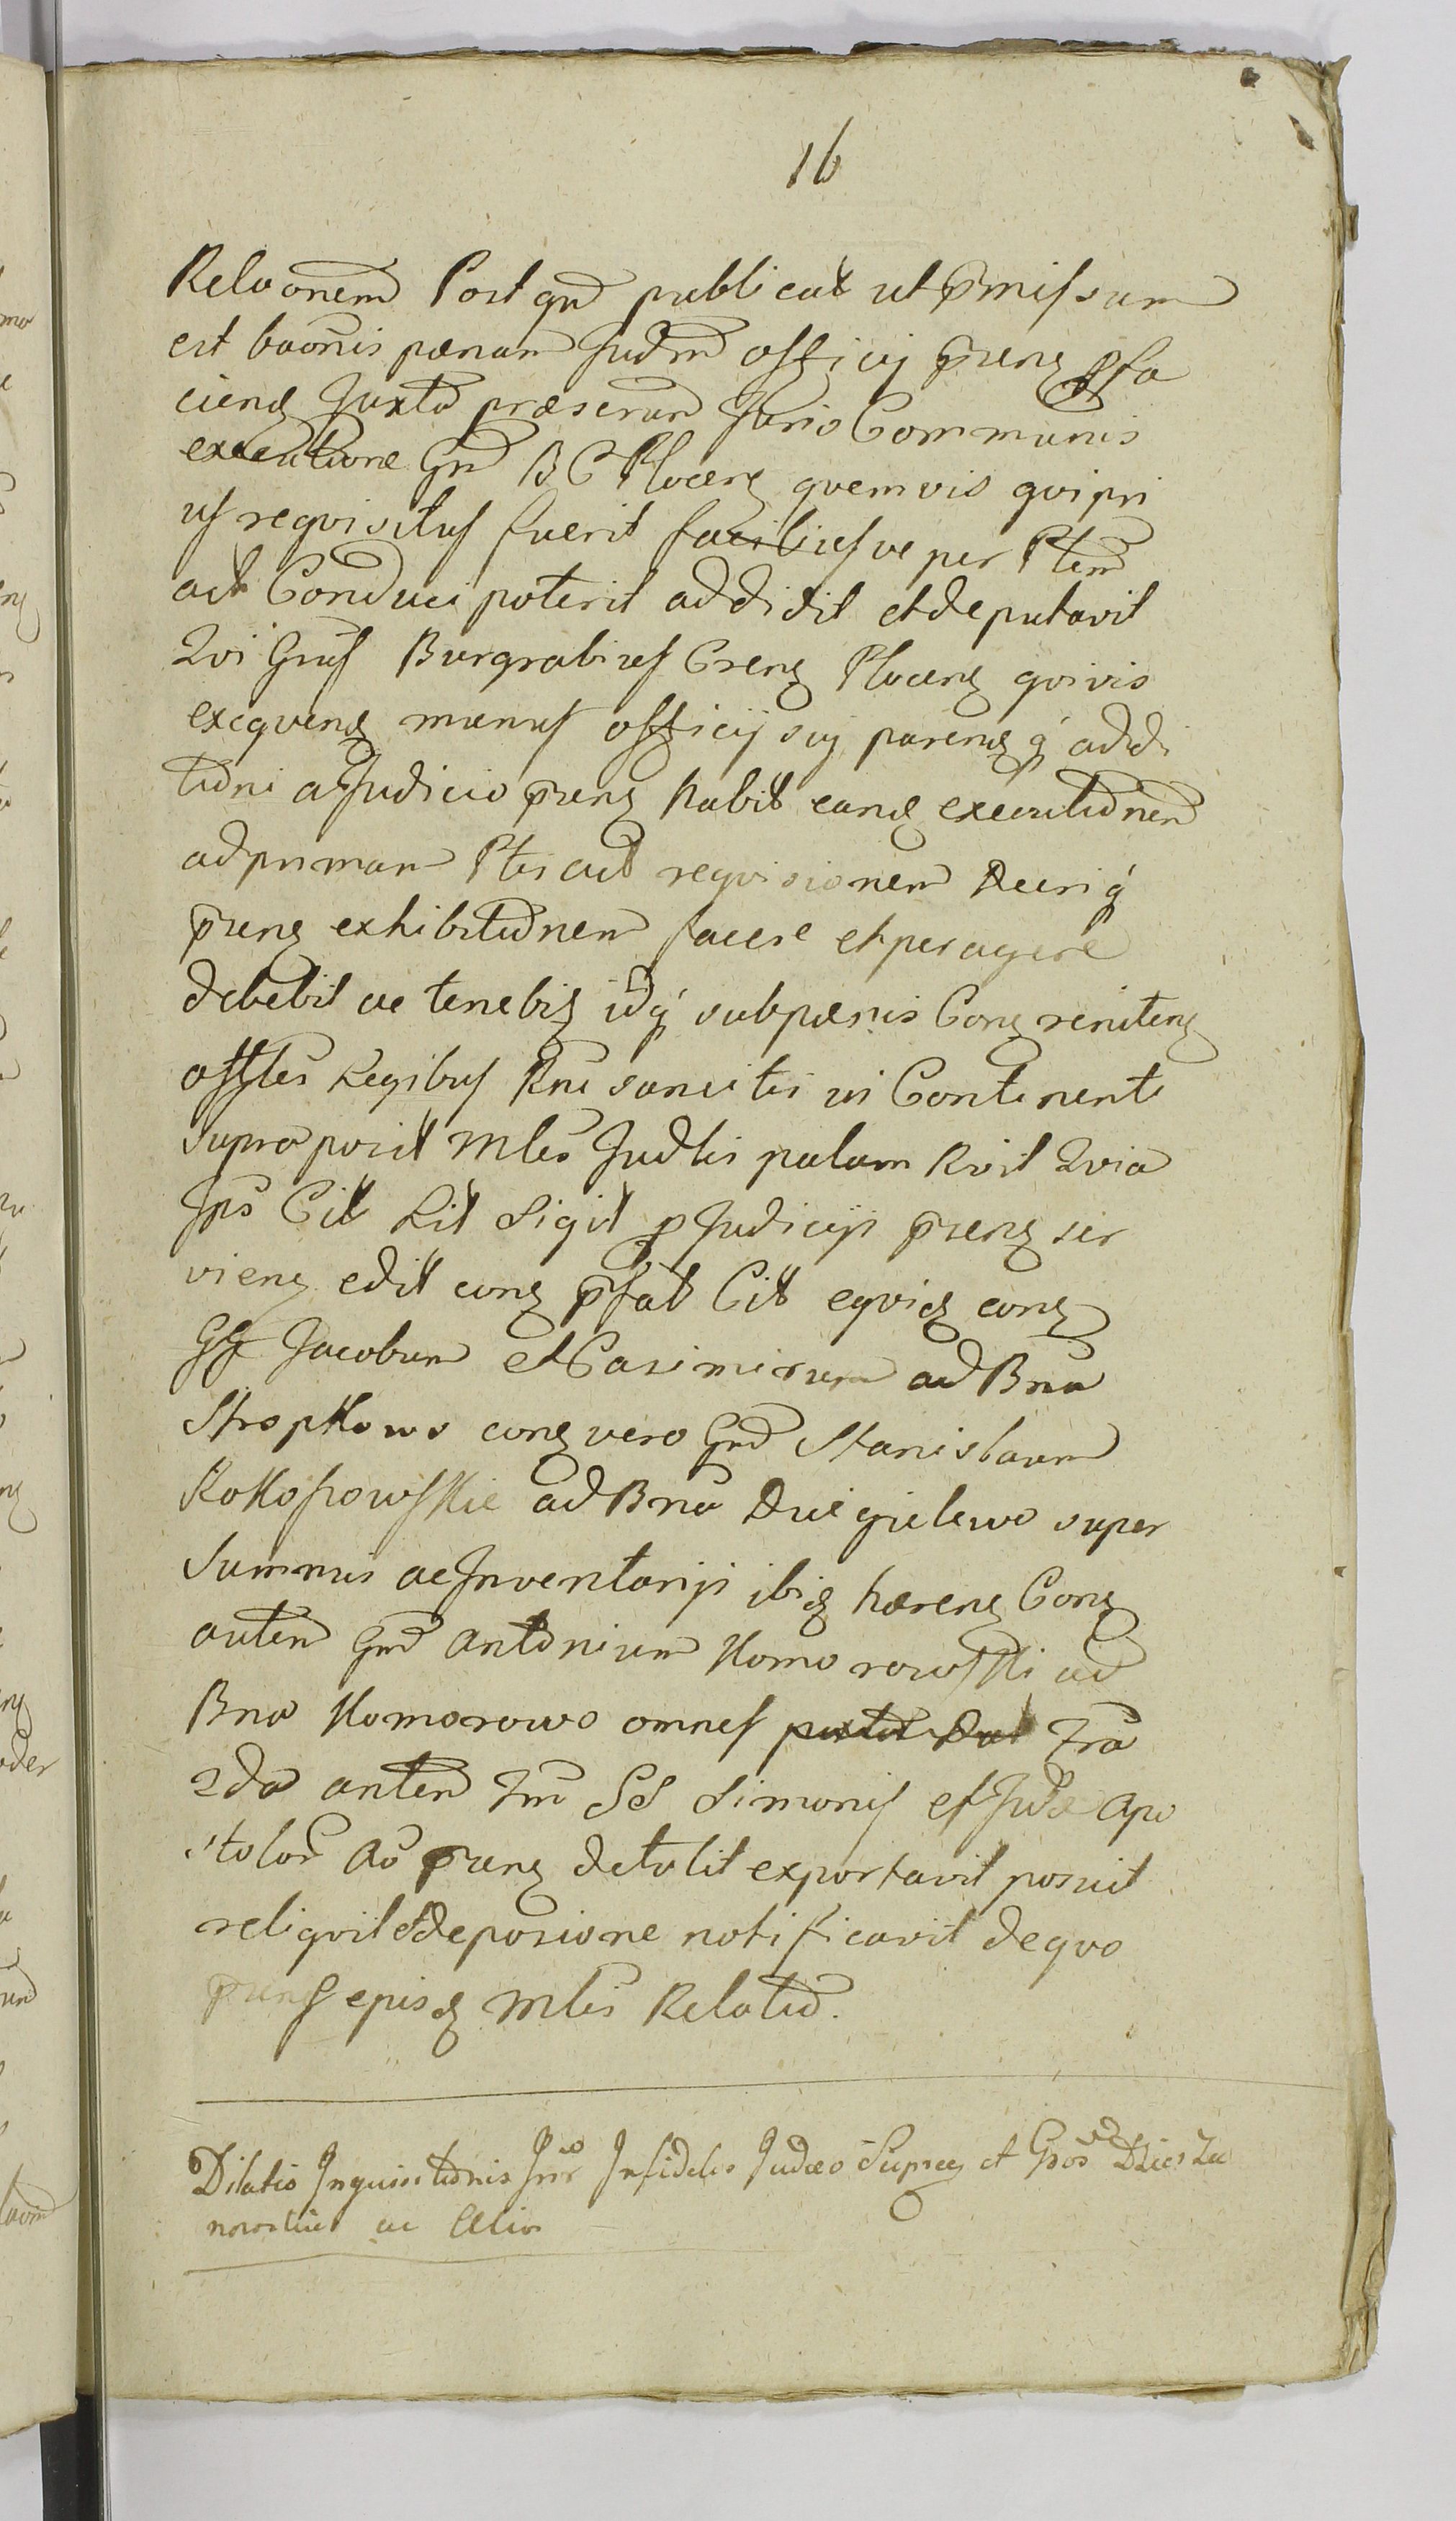 16
Relaonem Post qm publicat ut pmissum
est baonis paenam Judm officij praens pfa
ciens Juxta praescrum Juris Communis
executione Gnd B C Plocens quemvis qvi pri
us reqvisitus fuerit faciliusve per Ptem
act Conduci poterit addidit et deputavit
Qvi Gnus Burgrabius Crens Plocens qvivis
exeqvens munus officij sui parensq addi
tioni a Judicio praens habit eand executionem
ad primam Ptis act reqvisionem Decriq
praens exhibitionem facere et peragere
debebit ac tenebit idq sub paenis Con renitens
offles Legibus Rni sancitis in Continenti
supra posit Mlis Judlis palam Rvit Qvia
Ips Cit Lit Sigit p Judicijs praens ser
viens edit con pfat Cit eqvid con
GG Jacobum et Casimirum ad Bna
Stropkowo con vero Gnd Stanislaum
Rokossowskie ad Bna Dziegielewo super
Summis ac Inventarijs ibid haerens Con
autem Gnd Antonium Komorowski ad
Bna Komorowo omnes fra
2da antem fm SS Simonis et Judae Apo
stolor Ao praens detulit exportavit posuit
reliqvit et de posione notificavit de qvo
praens episd Mlis Relatio.
Dilatio Inquisitionis Infidelis Judaeo et
ac Alios